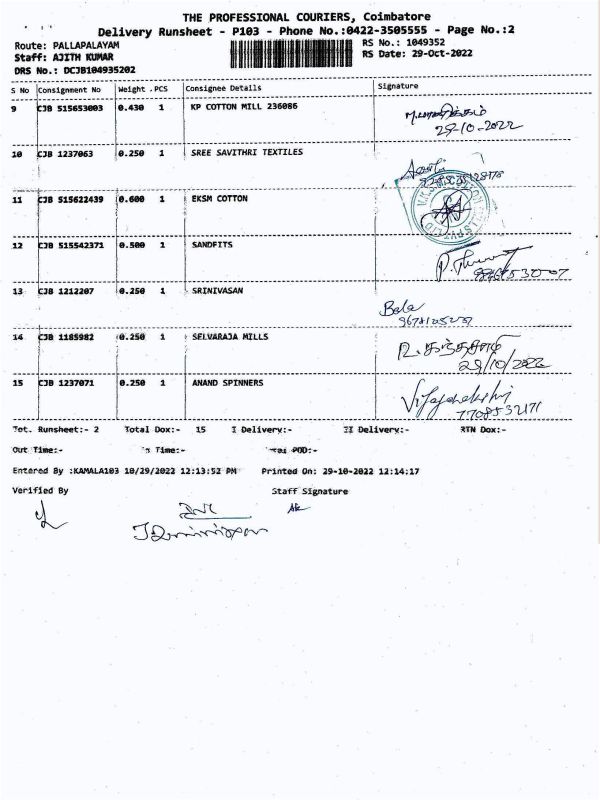 THE PROFESSIONAL COURIERS, Coimbatore
Delivery Runsheet - P103 - Phone No.:0422-3505555 - Page No.:2
Route: PALLAPALAYAM
RS No.: 1049352
Staff: AJITH KUMAR
RS Date: 29-Oct-2022
DRS No.: DCJB104935202
S No Consignment No Weight .PCS Consignee Details Signature
9 CJB 515653003 0.430 1 KP COTTON MILL 236086
29-10-2022
10 CJB 1237063 0.250 1 SREE SAVITHRI TEXTILES
11 CJB 515622439 0.600 1 EKSM COTTON
12 CJB 515542371 0.500 1 SANDFITS
13 CJB 1212207 0.250 1 SRINIVASAN
Bala
14 CJB 1185982 0.250 1 SELVARAJA MILLS
29/10/2022
15 CJB 1237071 0.250 1 ANAND SPINNERS
Vijayalakshmi
7708532171
Tot. Runsheet:- 2 Total Dox:- 15 I Delivery:- II Delivery:- RTN Dox:-
Out Time:- In Time:- Total POD:-
Entered By :KAMALA103 10/29/2022 12:13:52 PM Printed On: 29-10-2022 12:14:17
Verified By Staff Signature